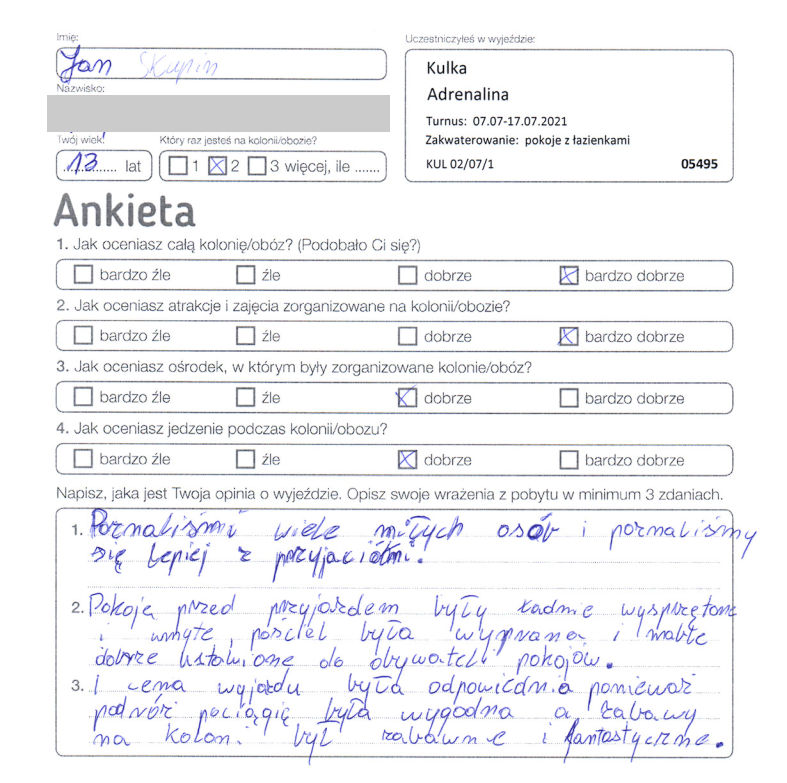 Imię:
Jan Skupin
Nazwisko:
Twój wiek:
13 lat
Który raz jesteś na kolonii/obozie?
1 2 3 więcej, ile .......
Uczestniczyłeś w wyjeździe:
Kulka
Adrenalina
Turnus: 07.07-17.07.2021
Zakwaterowanie: pokoje z łazienkami
KUL 02/07/1 05495
Ankieta
1. Jak oceniasz całą kolonię/obóz? (Podobało Ci się?)
bardzo źle źle dobrze bardzo dobrze
2. Jak oceniasz atrakcje i zajęcia zorganizowane na kolonii/obozie?
bardzo źle źle dobrze bardzo dobrze
3. Jak oceniasz ośrodek, w którym były zorganizowane kolonie/obóz?
bardzo źle źle dobrze bardzo dobrze
4. Jak oceniasz jedzenie podczas kolonii/obozu?
bardzo źle źle dobrze bardzo dobrze
Napisz, jaka jest Twoja opinia o wyjeździe. Opisz swoje wrażenia z pobytu w minimum 3 zdaniach.
1. Poznaliśmy wiele miłych osób i poznaliśmy
się lepiej z przyjaciółmi.
2. Pokoje przed przyjazdem były ładnie wysprzątane
i umyte, pościel była wyprana i meble
dobrze ustawione do obywateli pokojów.
3. I cena wyjazdu była odpowiednia ponieważ
podróż pociągię była wygodna a zabawy
na koloni był zabawne i fantastyczne.